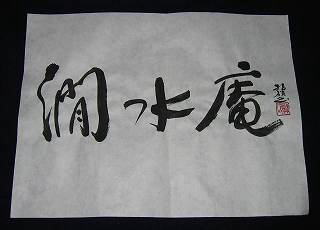 澗水庵